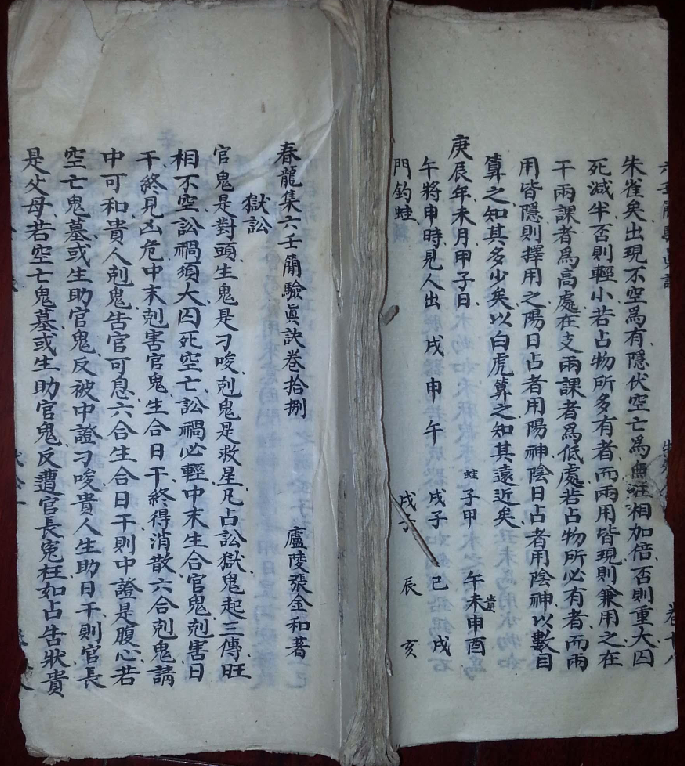 朱雀矣出現不空為有隱伏空亡為無旺相加倍否則重大囚
死減半否則輕小若占物所多有者而兩用皆現則兼用之在
干兩課者為高處在支兩課者為低處若占物所必有者而兩
用皆隱則擇用之陽日占者用陽神陰日占者用陰神以數目
算之知其多少矣以白虎算之知其遠近矣
庚辰年未月甲子日 蛇子甲 午未申酉
午將申時見人出 戌申午 戌子 己戌
門釣蛙 戌子 辰 亥
春龍集六壬簡驗真訣卷拾捌 廬陵張金和著
獄訟
官鬼是對頭生鬼是刁唆剋鬼是救星凡占訟獄鬼起三傳旺
相不空訟禍須大囚死空亡訟禍必輕中末生合官鬼剋害日
干終見凶危中末剋害官鬼生合日干終得消散六合剋鬼請
中可和貴人剋鬼告官可息六合生合日干則中證是腹心若
空亡鬼墓或生助官鬼反被中證刁唆貴人生助日干則官長
是父母若空亡鬼墓或生助官鬼反遭官長冤枉如占告狀貴